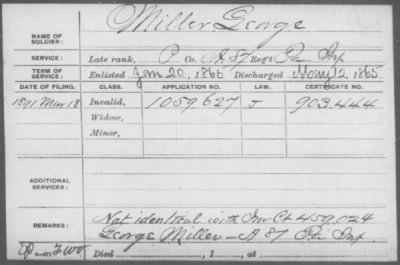 Miller George
NAME OF SOLDIER:
SERVICE: Late rank, P Co. A, 87 Reg't Pa Inf
TERM OF SERVICE: Enlisted Jan 20, 1865 Discharged May 12 1865
DATE OF FILING. CLASS. APPLICATION NO. LAW. CERTIFICATE NO.
1891 Mar 18 Invalid, 1059.627 J 903.444
Widow,
Minor,
ADDITIONAL SERVICES:
REMARKS: Not identical with Inv Ct 459,024
George Miller - A 87 Pa Inf.
Died , 1 , at